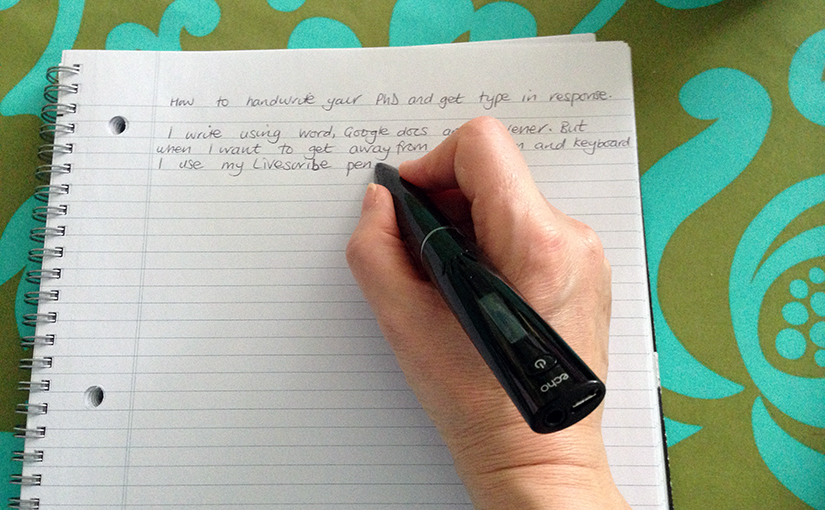 How to handwrite your PhD and get type in response.
I write using word, Google docs and vener. But
when I want to get away from and keyboard
I use my Livescribe pen
echo